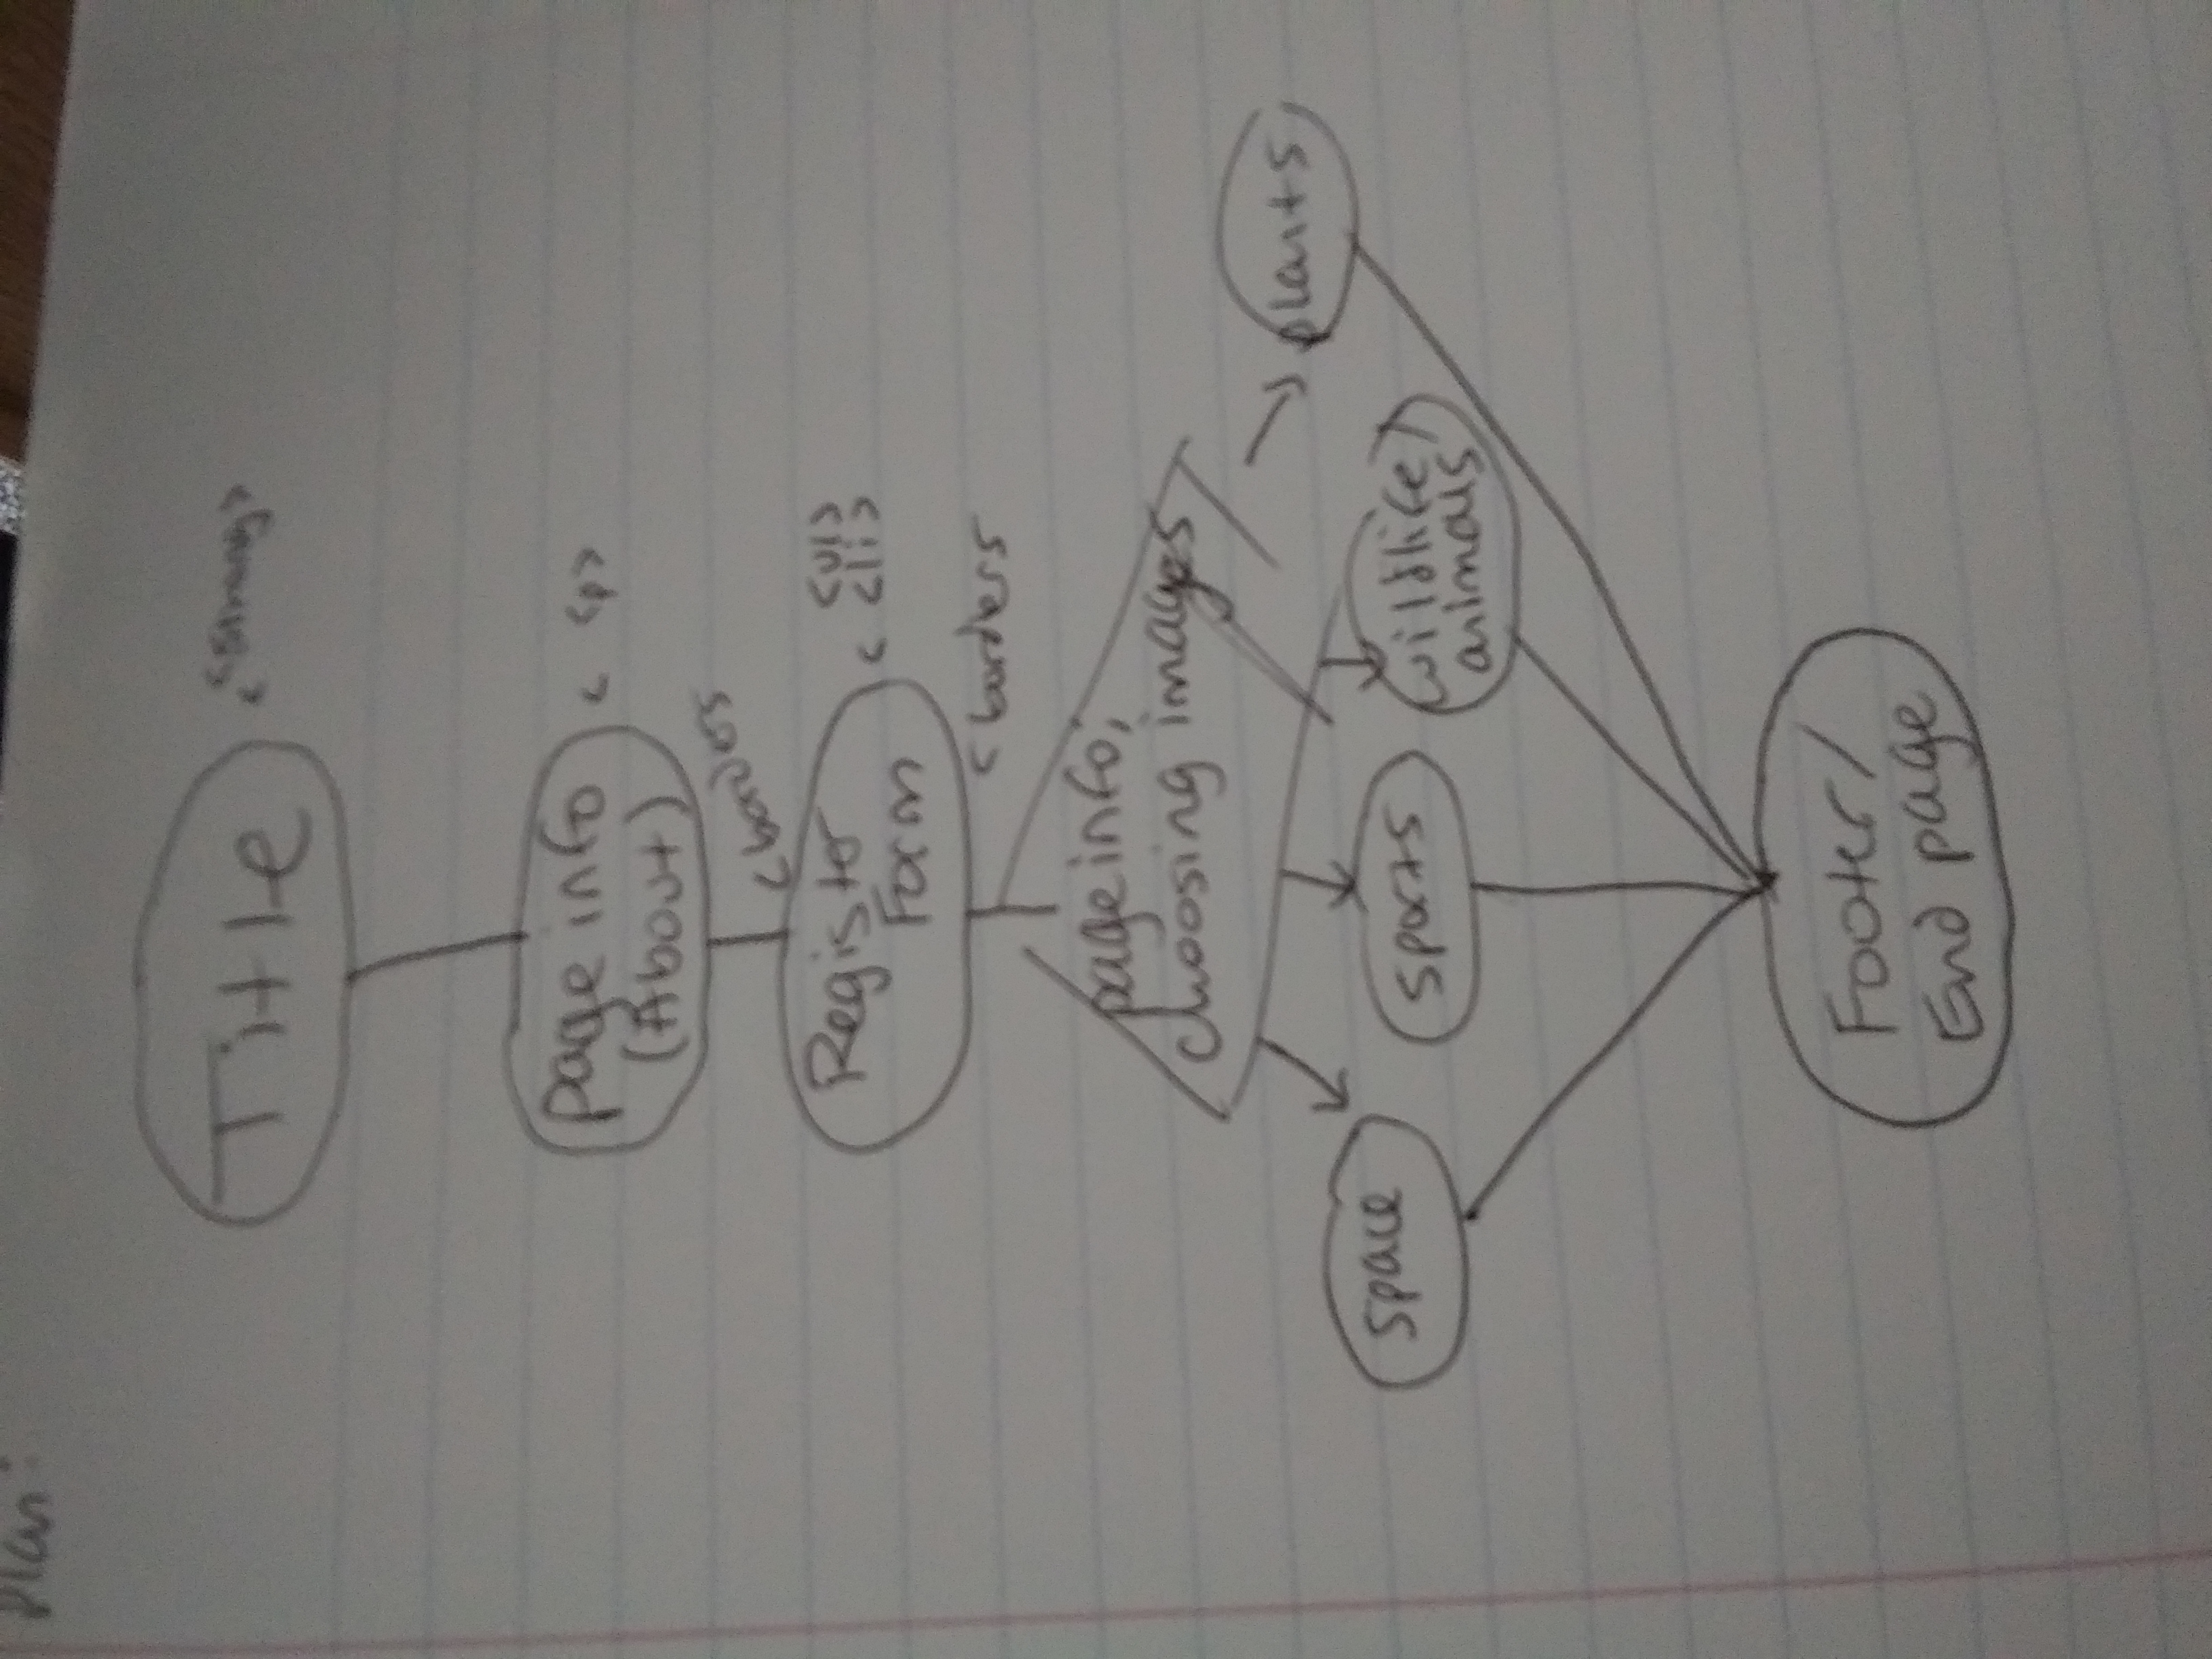 Plan:
Title
< <strong>
page info
(About)
< <p>
< borders
Register
Form
<ul>
< <li>
< borders
page info;
choosing images
plants
space
sports
wildlife/
animals
Footer/
End page